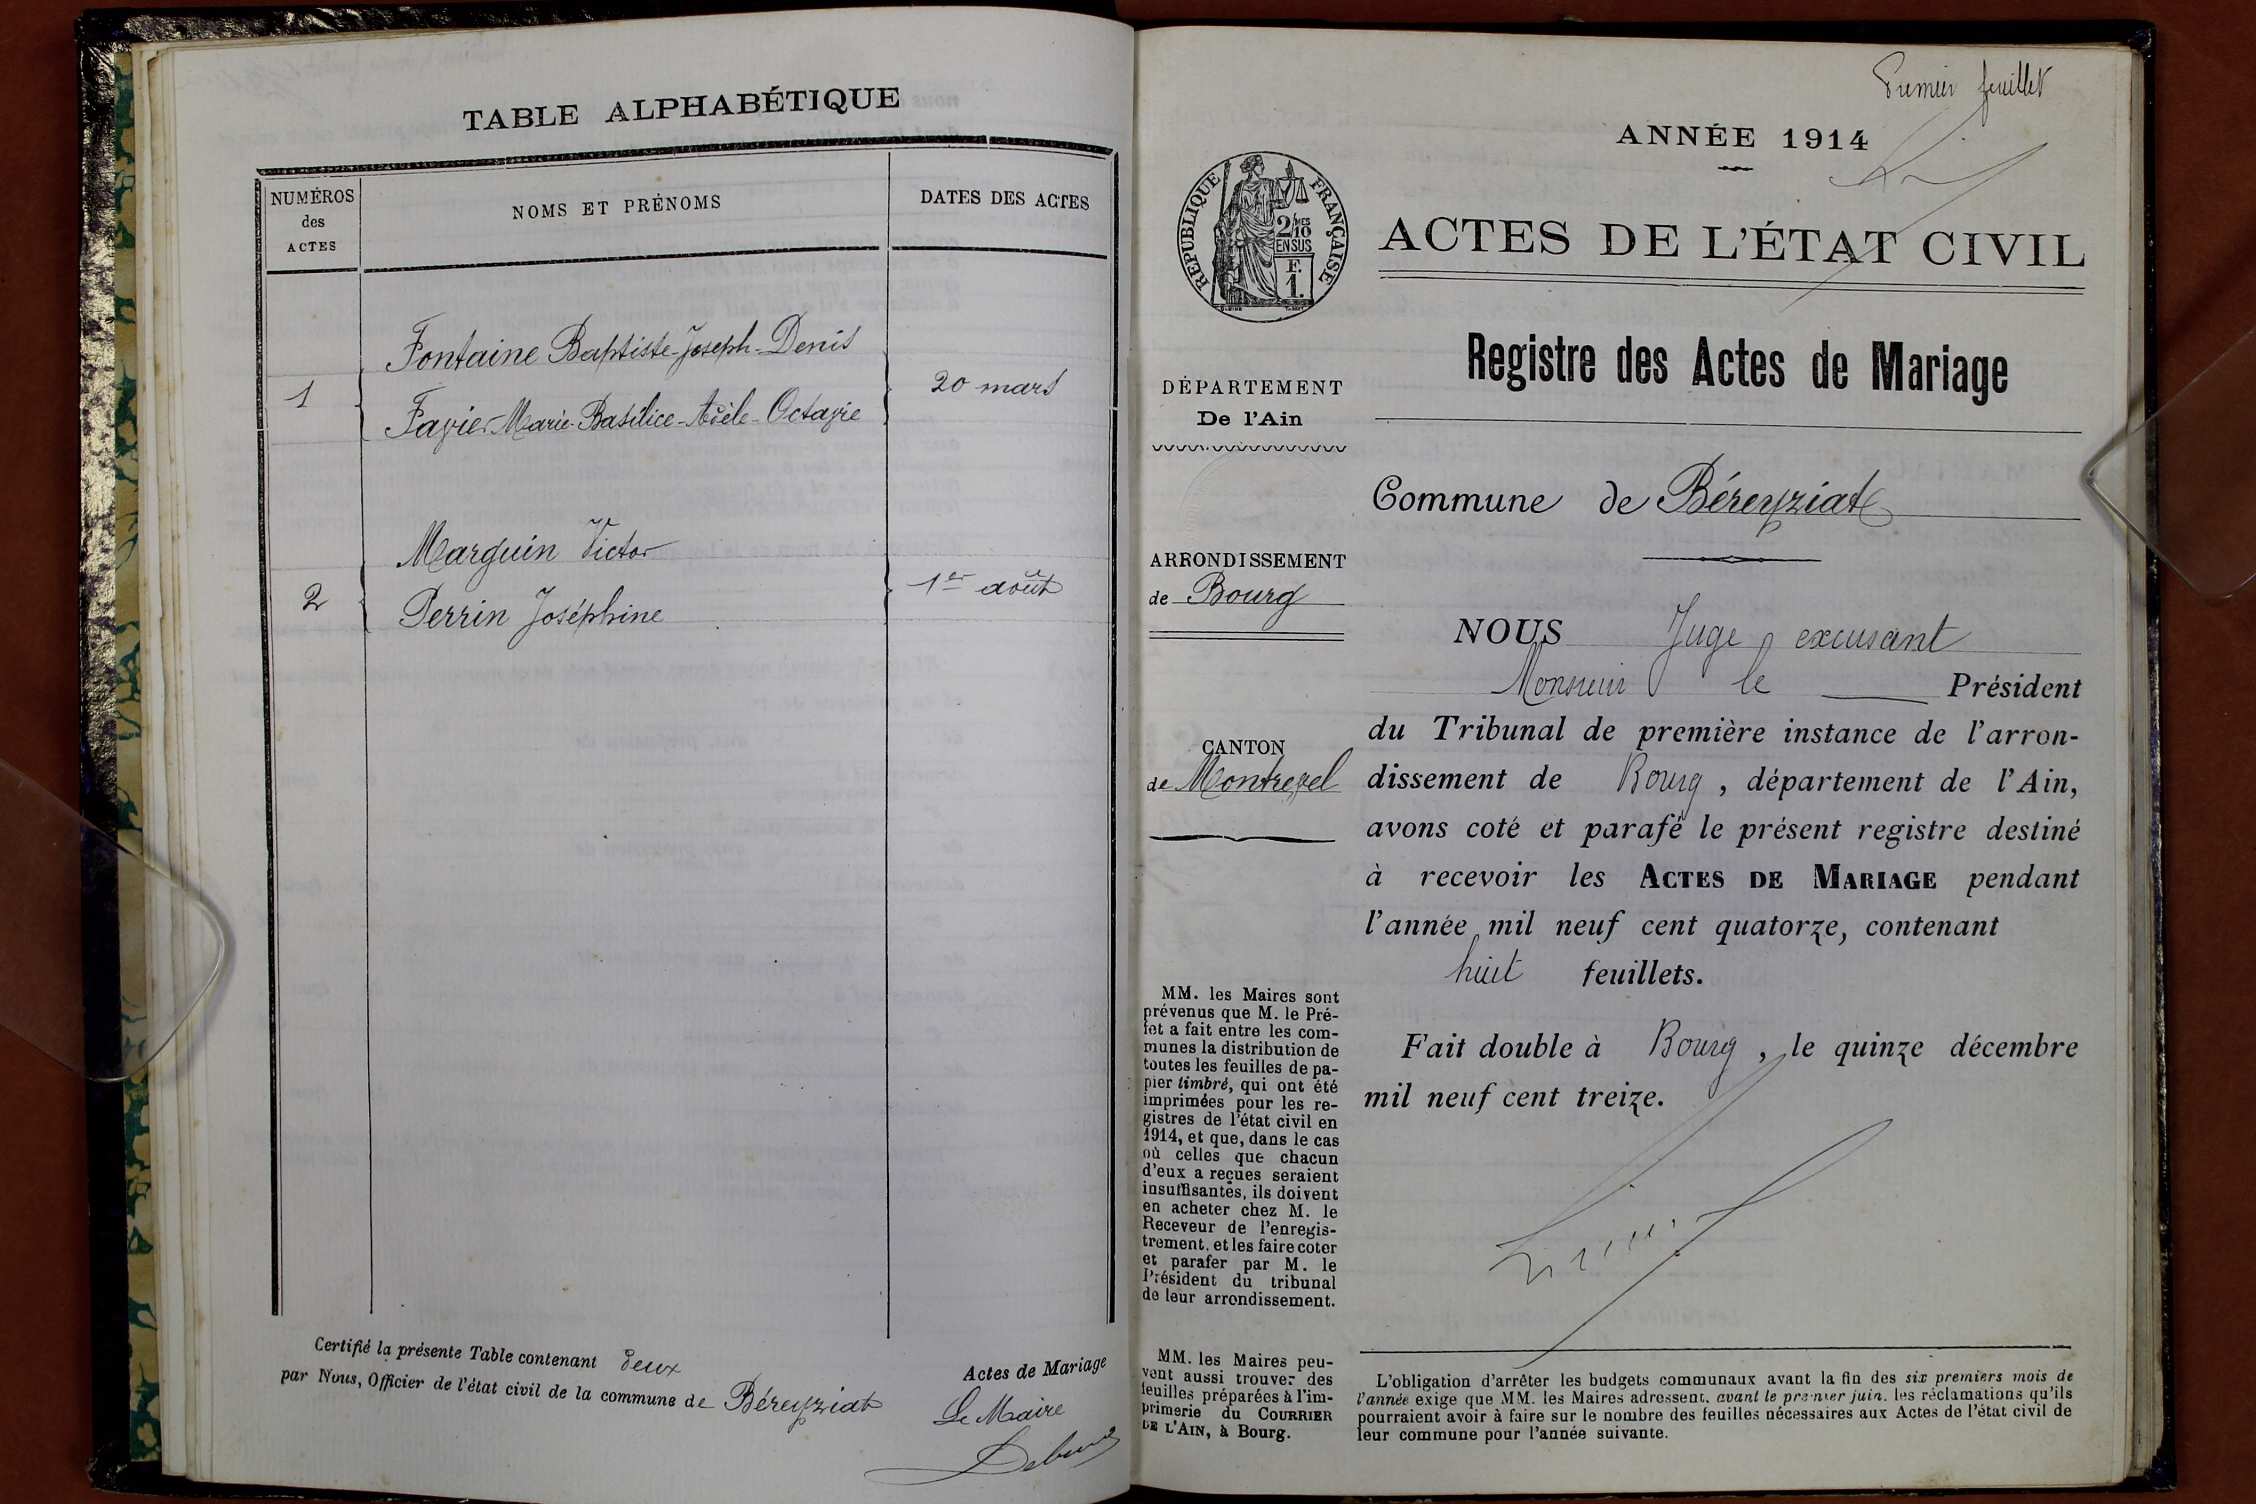 TABLE ALPHABÉTIQUE
NUMÉROS
des
ACTES
NOMS ET PRÉNOMS
DATES DES ACTES
Fontaine Baptiste-Joseph-Denis
1
20 mars
Favier Marie-Basilice-Adèle-Octavie
Marguin Victor
2
1er août
Perrin Joséphine
Certifié la présente Table contenant deux Actes de Mariage
par Nous, Officier de l'état civil de la commune de Béreyziat
Le Maire
Premier feuillet
ANNÉE 1914
RÉPUBLIQUE FRANÇAISE
2/10MES
EN SUS
F.
1.
ACTES DE L'ÉTAT CIVIL
Registre des Actes de Mariage
DÉPARTEMENT
De l'Ain
Commune de Béreyziat
ARRONDISSEMENT
de Bourg
CANTON
de Montrevel
NOUS Juge excusant
Monsieur le Président
du Tribunal de première instance de l'arron-
dissement de Bourg, département de l'Ain,
avons coté et parafé le présent registre destiné
à recevoir les ACTES DE MARIAGE pendant
l'année mil neuf cent quatorze, contenant
huit feuillets.
Fait double à Bourg, le quinze décembre
mil neuf cent treize.
MM. les Maires sont
prévenus que M. le Pré-
fet a fait entre les com-
munes la distribution de
toutes les feuilles de pa-
pier timbré, qui ont été
imprimées pour les re-
gistres de l'état civil en
1914, et que, dans le cas
où celles que chacun
d'eux a reçues seraient
insuffisantes, ils doivent
en acheter chez M. le
Receveur de l'enregis-
trement, et les faire coter
et parafer par M. le
Président du tribunal
de leur arrondissement.
MM. les Maires peu-
vent aussi trouver des
feuilles préparées à l'im-
primerie du COURRIER
DE L'AIN, à Bourg.
L'obligation d'arrêter les budgets communaux avant la fin des six premiers mois de
l'année exige que MM. les Maires adressent, avant le premier juin, les réclamations qu'ils
pourraient avoir à faire sur le nombre des feuilles nécessaires aux Actes de l'état civil de
leur commune pour l'année suivante.